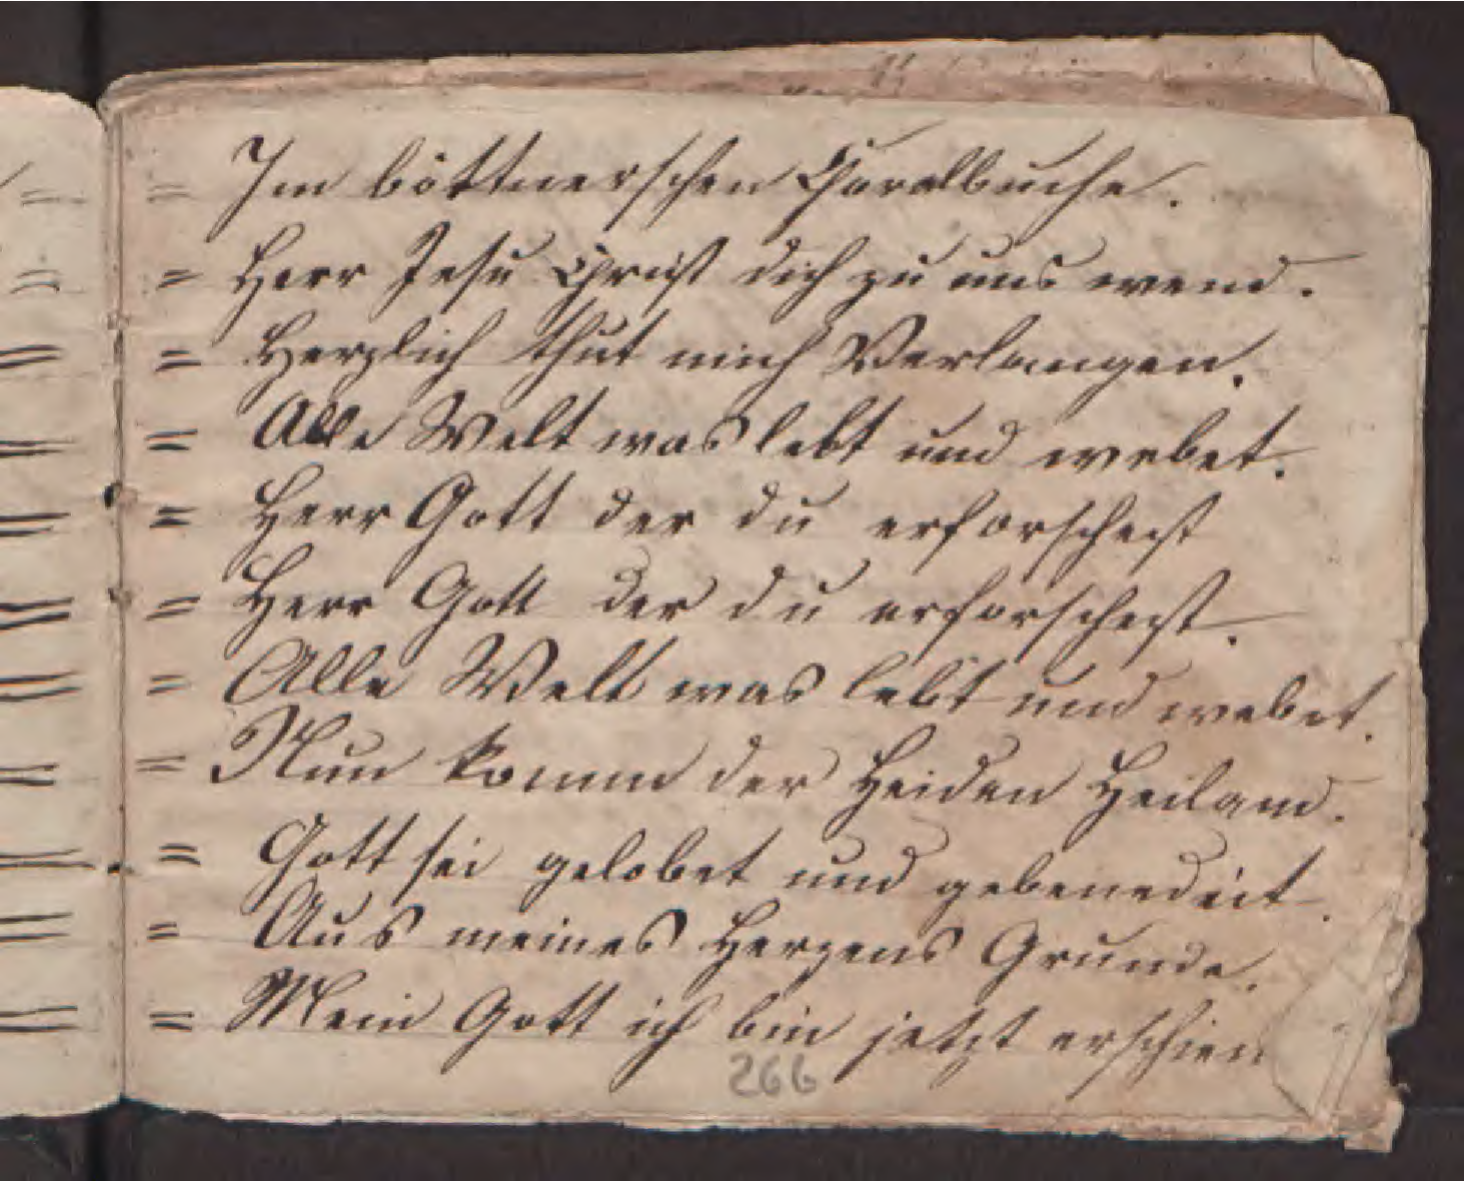 = Im böttnerschen Choralbuche.
= Herr Jesu Christ dich zu uns wend.
= Herzlich thut mich Verlangen.
= Alle Welt was lebt und webet.
= Herr Gott der du erforschest
= Herr Gott der du erforschest.
= Alle Welt was lebt und webet.
= Nun komm der Heiden Heiland.
= Gott sei gelobet und gebenedeit.
= Aus meines Herzens Grunde.
= Mein Gott ich bin jetzt erschien
266